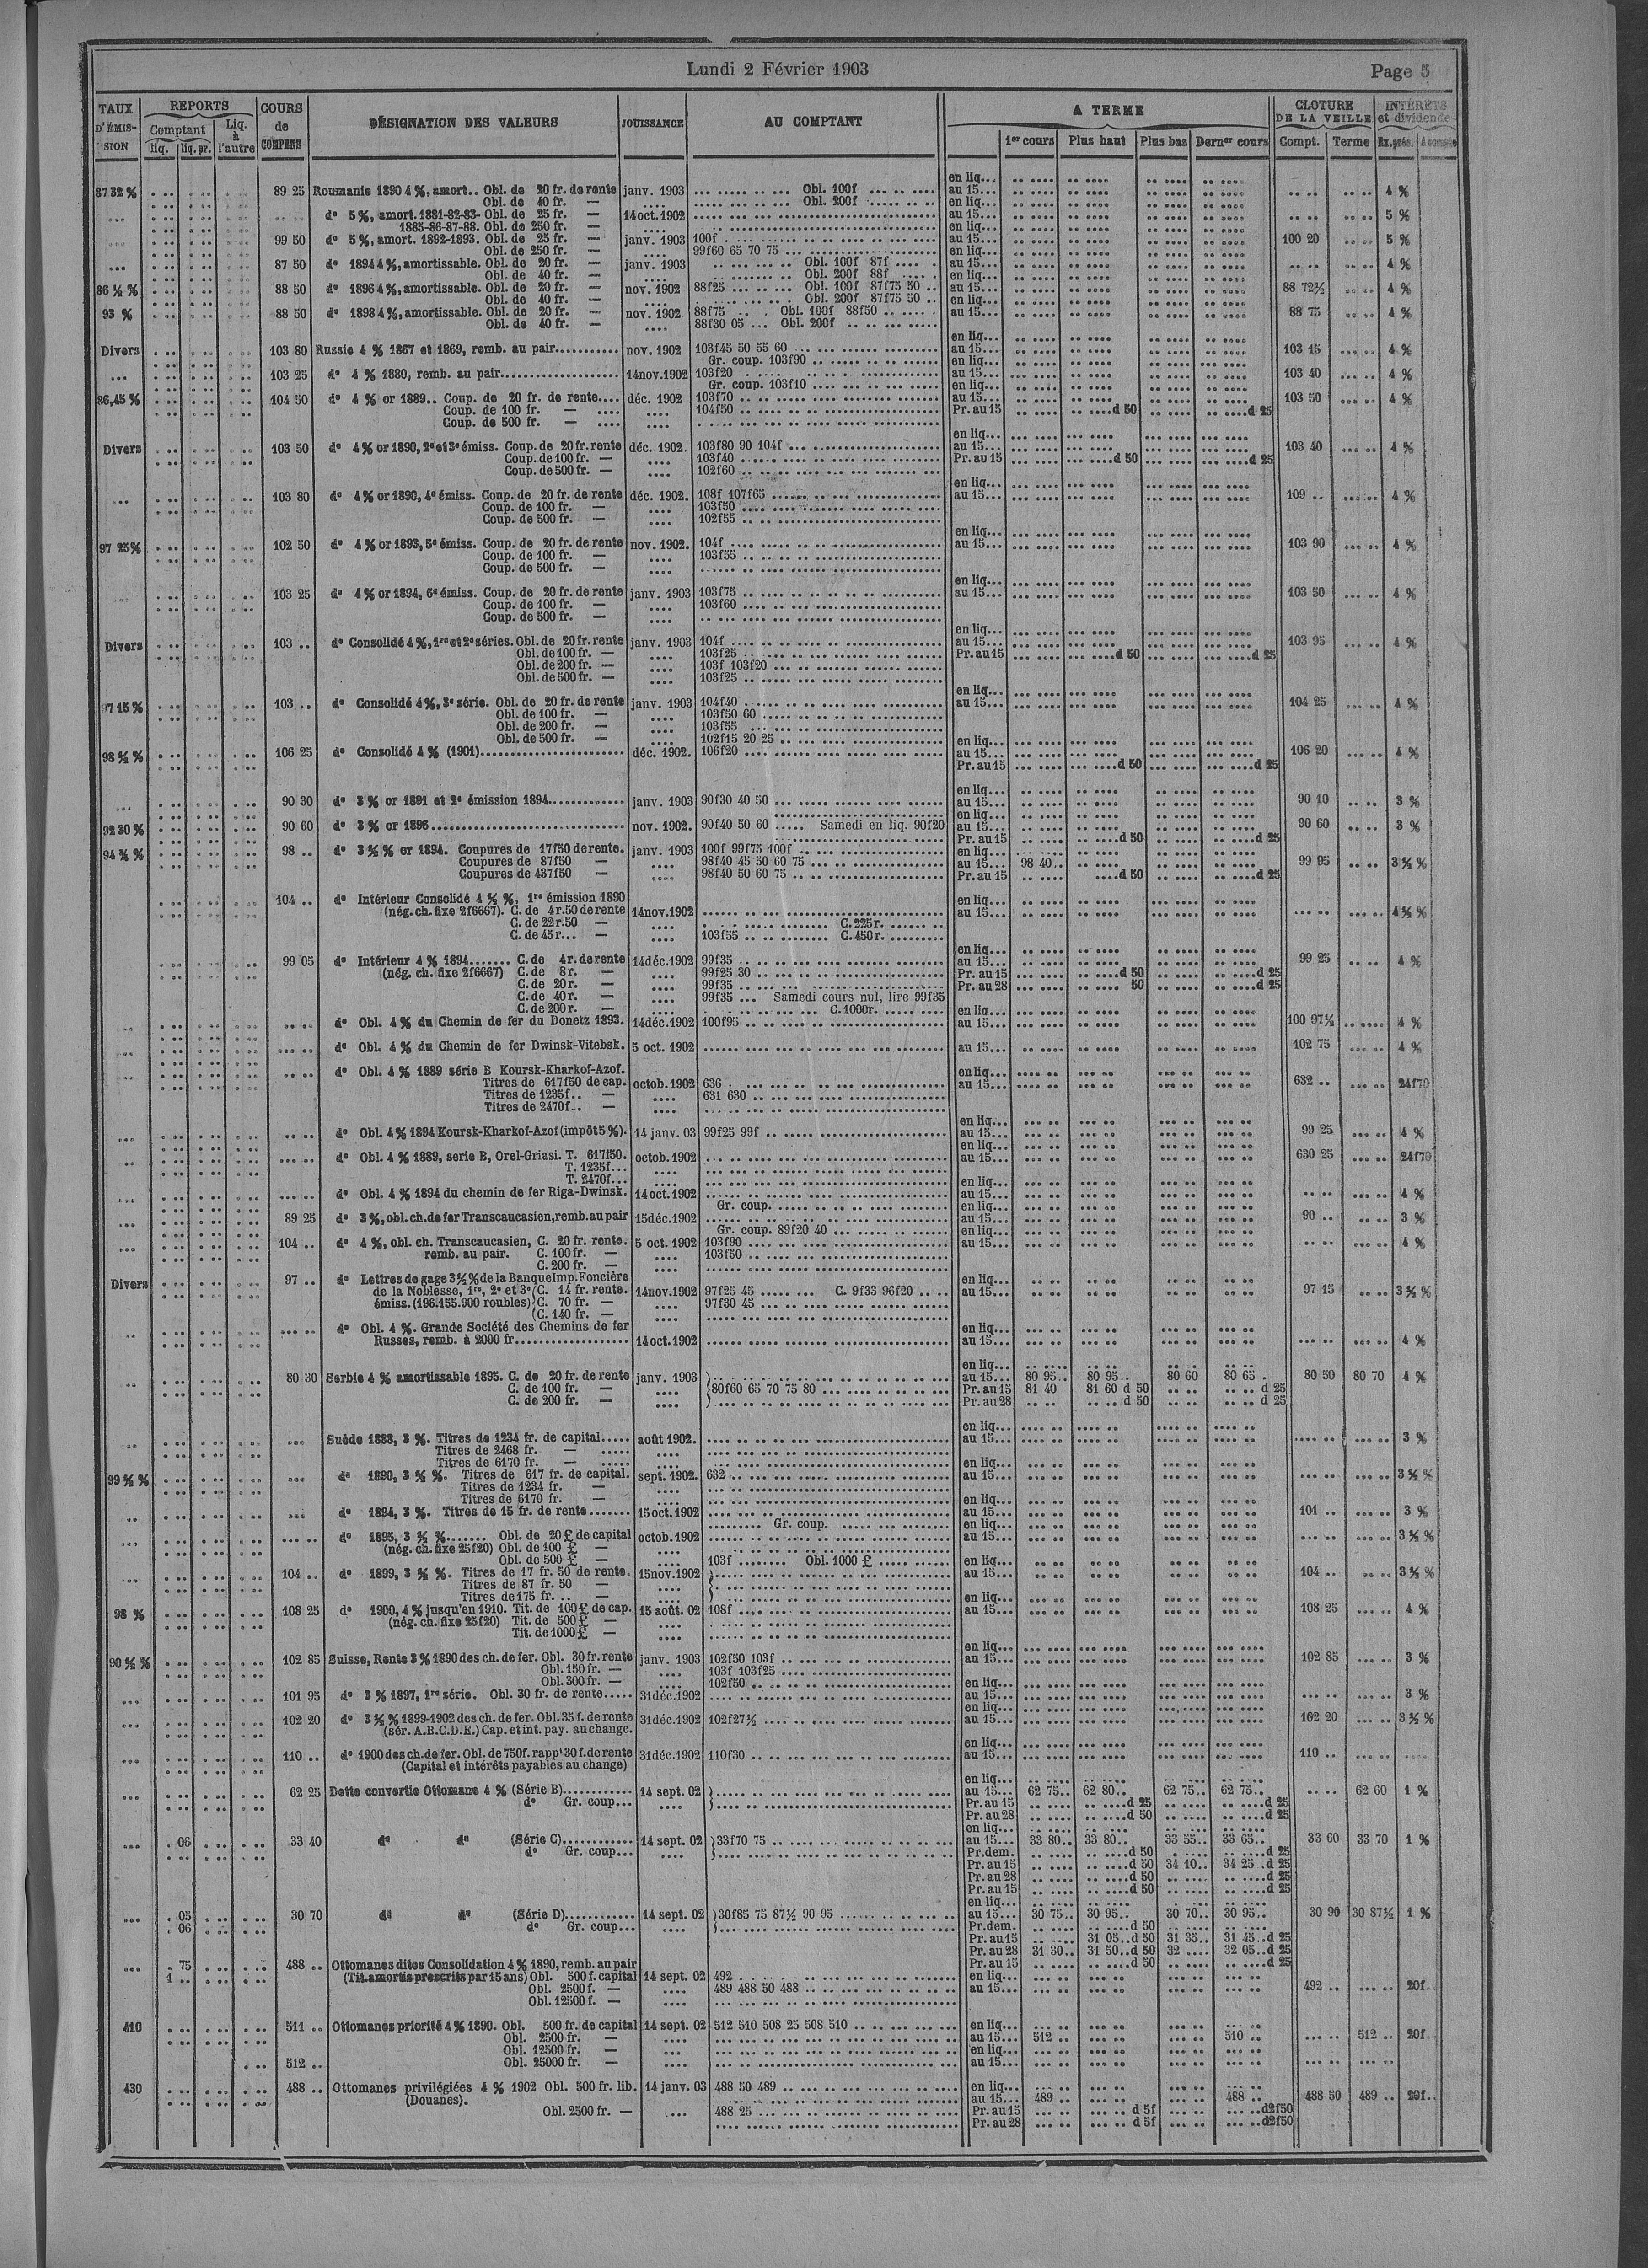 Lundi 2 Février 1903
Page 5
TAUX D'ÉMISSION | REPORTS Comptant liq. liq. pr. Liq. à l'autre | COURS de COMPENS | DÉSIGNATION DES VALEURS | JOUISSANCE | AU COMPTANT | A TERME 1er cours Plus haut Plus bas Derner cours | CLOTURE DE LA VEILLE Compt. Terme | INTÉRÊTS et dividende
87 32 % 89 25 Roumanie 1890 4 %, amort.. Obl. de 20 fr. de rente janv. 1903 Obl. 100f en liq... au 15... 4 %
Obl. de 40 fr. — Obl. 200f en liq...
do 5 %, amort. 1881-82-83- Obl. de 25 fr. — 14 oct. 1902 au 15... 5 %
1885-86-87-88. Obl. de 250 fr. — en liq...
99 50 do 5 %, amort. 1892-1893. Obl. de 25 fr. — janv. 1903 100f au 15... 100 20 5 %
Obl. de 250 fr. — 99f60 65 70 75 en liq...
87 50 do 1894 4 %, amortissable. Obl. de 20 fr. — janv. 1903 Obl. 100f 87f au 15... 4 %
Obl. de 40 fr. — Obl. 200f 88f en liq...
86 ½ % 88 50 do 1896 4 %, amortissable. Obl. de 20 fr. — nov. 1902 88f25 Obl. 100f 87f75 50 au 15... 88 72½ 4 %
Obl. de 40 fr. — Obl. 200f 87f75 50 en liq...
93 % 88 50 do 1898 4 %, amortissable. Obl. de 20 fr. — nov. 1902 88f75 Obl. 100f 88f50 au 15... 88 75 4 %
Obl. de 40 fr. — 88f30 05 Obl. 200f
Divers 103 80 Russie 4 % 1867 et 1869, remb. au pair nov. 1902 103f45 50 55 60 en liq... au 15... 103 15 4 %
Gr. coup. 103f90 en liq...
103 25 do 4 % 1880, remb. au pair 14 nov. 1902 103f20 au 15... 103 40 4 %
Gr. coup. 103f10 en liq...
86,45 % 104 50 do 4 % or 1889.. Coup. de 20 fr. de rente déc. 1902 103f70 au 15... 103 50 4 %
Coup. de 100 fr. — 104f50 Pr. au 15 d 50 d 25
Coup. de 500 fr. —
Divers 103 50 do 4 % or 1890, 2e et 3e émiss. Coup. de 20 fr. rente déc. 1902. 103f80 90 104f en liq... au 15... 103 40 4 %
Coup. de 100 fr. — 103f40 Pr. au 15 d 50 d 25
Coup. de 500 fr. — 102f60
103 80 do 4 % or 1890, 4e émiss. Coup. de 20 fr. de rente déc. 1902. 108f 107f65 en liq... au 15... 109 4 %
Coup. de 100 fr. — 103f50
Coup. de 500 fr. — 102f55
97 25 % 102 50 do 4 % or 1893, 5e émiss. Coup. de 20 fr. de rente nov. 1902. 104f en liq... au 15... 103 90 4 %
Coup. de 100 fr. — 103f55
Coup. de 500 fr. —
103 25 do 4 % or 1894, 6e émiss. Coup. de 20 fr. de rente janv. 1903 103f75 en liq... au 15... 103 50 4 %
Coup. de 100 fr. — 103f60
Coup. de 500 fr. —
Divers 103 do Consolidé 4 %, 1re et 2e séries. Obl. de 20 fr. rente janv. 1903 104f en liq... au 15... 103 95 4 %
Obl. de 100 fr. — 103f25 Pr. au 15 d 50 d 25
Obl. de 200 fr. — 103f 103f20
Obl. de 500 fr. — 103f25
97 15 % 103 do Consolidé 4 %, 3e série. Obl. de 20 fr. de rente janv. 1903 104f40 en liq... au 15... 104 25 4 %
Obl. de 100 fr. — 103f50 60
Obl. de 200 fr. — 103f55
Obl. de 500 fr. — 102f15 20 25
98 ½ % 106 25 do Consolidé 4 % (1901) déc. 1902. 106f20 en liq... au 15... 106 20 4 %
Pr. au 15 d 50 d 25
90 30 do 3 % or 1891 et 2e émission 1894 janv. 1903 90f30 40 50 en liq... au 15... 90 10 3 %
92 30 % 90 60 do 3 % or 1896 nov. 1902. 90f40 50 60 Samedi en liq. 90f20 en liq... au 15... 90 60 3 %
Pr. au 15 d 50 d 25
94 ¾ % 98 do 3 ½ % or 1894. Coupures de 17f50 de rente. janv. 1903 100f 99f75 100f en liq...
Coupures de 87f50 — 98f40 45 50 60 75 au 15... 98 40 99 95 3 ½ %
Coupures de 437f50 — 98f40 50 60 75 Pr. au 15 d 50 d 25
104 do Intérieur Consolidé 4 ½ %, 1re émission 1890 en liq...
(nég. ch. fixe 2f6667). C. de 4r.50 de rente 14 nov. 1902 au 15... 4 ½ %
C. de 22r.50 — C. 225r.
C. de 45r... — 103f55 C. 450r.
99 05 do Intérieur 4 % 1894 C. de 4r. de rente 14 déc. 1902 99f35 en liq... au 15... 99 25 4 %
(nég. ch. fixe 2f6667) C. de 8r. — 99f25 30 Pr. au 15 d 50 d 25
C. de 20r. — 99f35 Pr. au 28 50 d 25
C. de 40r. — 99f35 Samedi cours nul, lire 99f35
C. de 200r. — C. 1000r. en liq...
do Obl. 4 % du Chemin de fer du Donetz 1893. 14 déc. 1902 100f95 au 15... 100 97½ 4 %
do Obl. 4 % du Chemin de fer Dwinsk-Vitebsk. 5 oct. 1902 au 15... 102 75 4 %
do Obl. 4 % 1889 série B Koursk-Kharkof-Azof. en liq...
Titres de 617f50 de cap. octob. 1902 636 au 15... 632 24f70
Titres de 1235f.. — 631 630
Titres de 2470f.. —
do Obl. 4 % 1894 Koursk-Kharkof-Azof (impôt 5 %). 14 janv. 03 99f25 99f en liq... au 15... 99 25 4 %
do Obl. 4 % 1889, serie B, Orel-Griasi. T. 617f50. octob. 1902 en liq... au 15... 630 25 24f70
T. 1235f...
T. 2470f...
do Obl. 4 % 1894 du chemin de fer Riga-Dwinsk. 14 oct. 1902 en liq... au 15... 4 %
Gr. coup. en liq...
89 25 do 3 %, obl. ch. de fer Transcaucasien, remb. au pair 15 déc. 1902 au 15... 90 3 %
Gr. coup. 89f20 40 en liq...
104 do 4 %, obl. ch. Transcaucasien, C. 20 fr. rente. 5 oct. 1902 103f90 au 15... 4 %
remb. au pair. C. 100 fr. — 103f50
C. 200 fr. —
Divers 97 do Lettres de gage 3 ½ % de la Banque Imp. Foncière en liq...
de la Noblesse, 1re, 2e et 3e C. 14 fr. rente. 14 nov. 1902 97f25 45 C. 9f33 96f20 au 15... 97 15 3 ½ %
émiss. (196.155.900 roubles) C. 70 fr. — 97f30 45
C. 140 fr. —
do Obl. 4 %. Grande Société des Chemins de fer en liq...
Russes, remb. à 2000 fr. 14 oct. 1902 au 15... 4 %
80 30 Serbie 4 % amortissable 1895. C. de 20 fr. de rente janv. 1903 en liq... au 15... 80 95 80 95 80 60 80 65 80 50 80 70 4 %
C. de 100 fr. — 80f60 65 70 75 80 Pr. au 15 81 40 81 60 d 50 d 25
C. de 200 fr. — Pr. au 28 d 50 d 25
Suède 1888, 3 %. Titres de 1234 fr. de capital août 1902. en liq... au 15... 3 %
Titres de 2468 fr. —
Titres de 6170 fr. — en liq...
99 ½ % do 1890, 3 ½ %. Titres de 617 fr. de capital. sept. 1902. 632 au 15... 3 ½ %
Titres de 1234 fr. —
Titres de 6170 fr. — en liq...
do 1894, 3 %. Titres de 15 fr. de rente 15 oct. 1902 au 15... 101 3 %
Gr. coup. en liq...
do 1895, 3 ½ % Obl. de 20 £ de capital octob. 1902 au 15... 3 ½ %
(nég. ch. fixe 25f20) Obl. de 100 £ —
Obl. de 500 £ — 103f Obl. 1000 £ en liq...
104 do 1899, 3 ½ %. Titres de 17 fr. 50 de rente. 15 nov. 1902 au 15... 104 3 ½ %
Titres de 87 fr. 50 —
Titres de 175 fr. — en liq...
98 % 108 25 do 1900, 4 % jusqu'en 1910. Tit. de 100 £ de cap. 15 août. 02 108f au 15... 108 25 4 %
(nég. ch. fixe 25f20) Tit. de 500 £ —
Tit. de 1000 £ —
90 ½ % 102 85 Suisse, Rente 3 % 1890 des ch. de fer. Obl. 30 fr. rente janv. 1903 102f50 103f en liq... au 15... 102 85 3 %
Obl. 150 fr. — 103f 103f25
Obl. 300 fr. — 102f50 en liq...
101 95 do 3 % 1897, 1re série. Obl. 30 fr. de rente 31 déc. 1902 au 15... 3 %
102 20 do 3 ½ % 1899-1902 des ch. de fer. Obl. 35 f. de rente 31 déc. 1902 102f27½ en liq... au 15... 102 20 3 ½ %
(sér. A.B.C.D.E.) Cap. et int. pay. au change.
110 do 1900 des ch. de fer. Obl. de 750f. rappt 30 f. de rente 31 déc. 1902 110f30 en liq... au 15... 110
(Capital et intérêts payables au change)
62 25 Dette convertie Ottomane 4 % (Série B) 14 sept. 02 en liq... au 15... 62 75 62 80 62 75 62 75 62 60 1 %
do Gr. coup... Pr. au 15 d 25 d 25
Pr. au 28 d 50 d 25
06 33 40 do do (Série C) 14 sept. 02 33f70 75 en liq... au 15... 33 80 33 80 33 55 33 65 33 60 33 70 1 %
do Gr. coup... Pr. dem. d 50 d 25
Pr. au 15 d 50 34 10 34 25 d 25
Pr. au 28 d 50 d 25
Pr. au 15 d 50 d 25
05 30 70 do do (Série D) 14 sept. 02 30f85 75 87½ 90 95 en liq... au 15... 30 75 30 95 30 70 30 95 30 90 30 87½ 1 %
06 do Gr. coup... Pr. dem. d 50
Pr. au 15 31 05 d 50 31 35 31 45 d 25
Pr. au 28 31 30 31 50 d 50 32 32 05 d 25
75 488 Ottomanes dites Consolidation 4 % 1890, remb. au pair Pr. au 15 d 50 d 25
1 (Tit. amortis prescrits par 15 ans) Obl. 500 f. capital 14 sept. 02 492 en liq...
Obl. 2500 f. — 489 488 50 488 au 15... 492 20f
Obl. 12500 f. —
410 511 Ottomanes priorité 4 % 1890. Obl. 500 fr. de capital 14 sept. 02 512 510 508 25 508 510 en liq...
Obl. 2500 fr. — au 15... 512 510 512 20f
Obl. 12500 fr. — en liq...
512 Obl. 25000 fr. — au 15...
430 488 Ottomanes privilégiées 4 % 1902 Obl. 500 fr. lib. 14 janv. 03 488 50 489 en liq...
(Douanes). au 15... 489 488 488 50 489 20f
Obl. 2500 fr. — 488 25 Pr. au 15 d 5f d2f50
Pr. au 28 d 5f d2f50